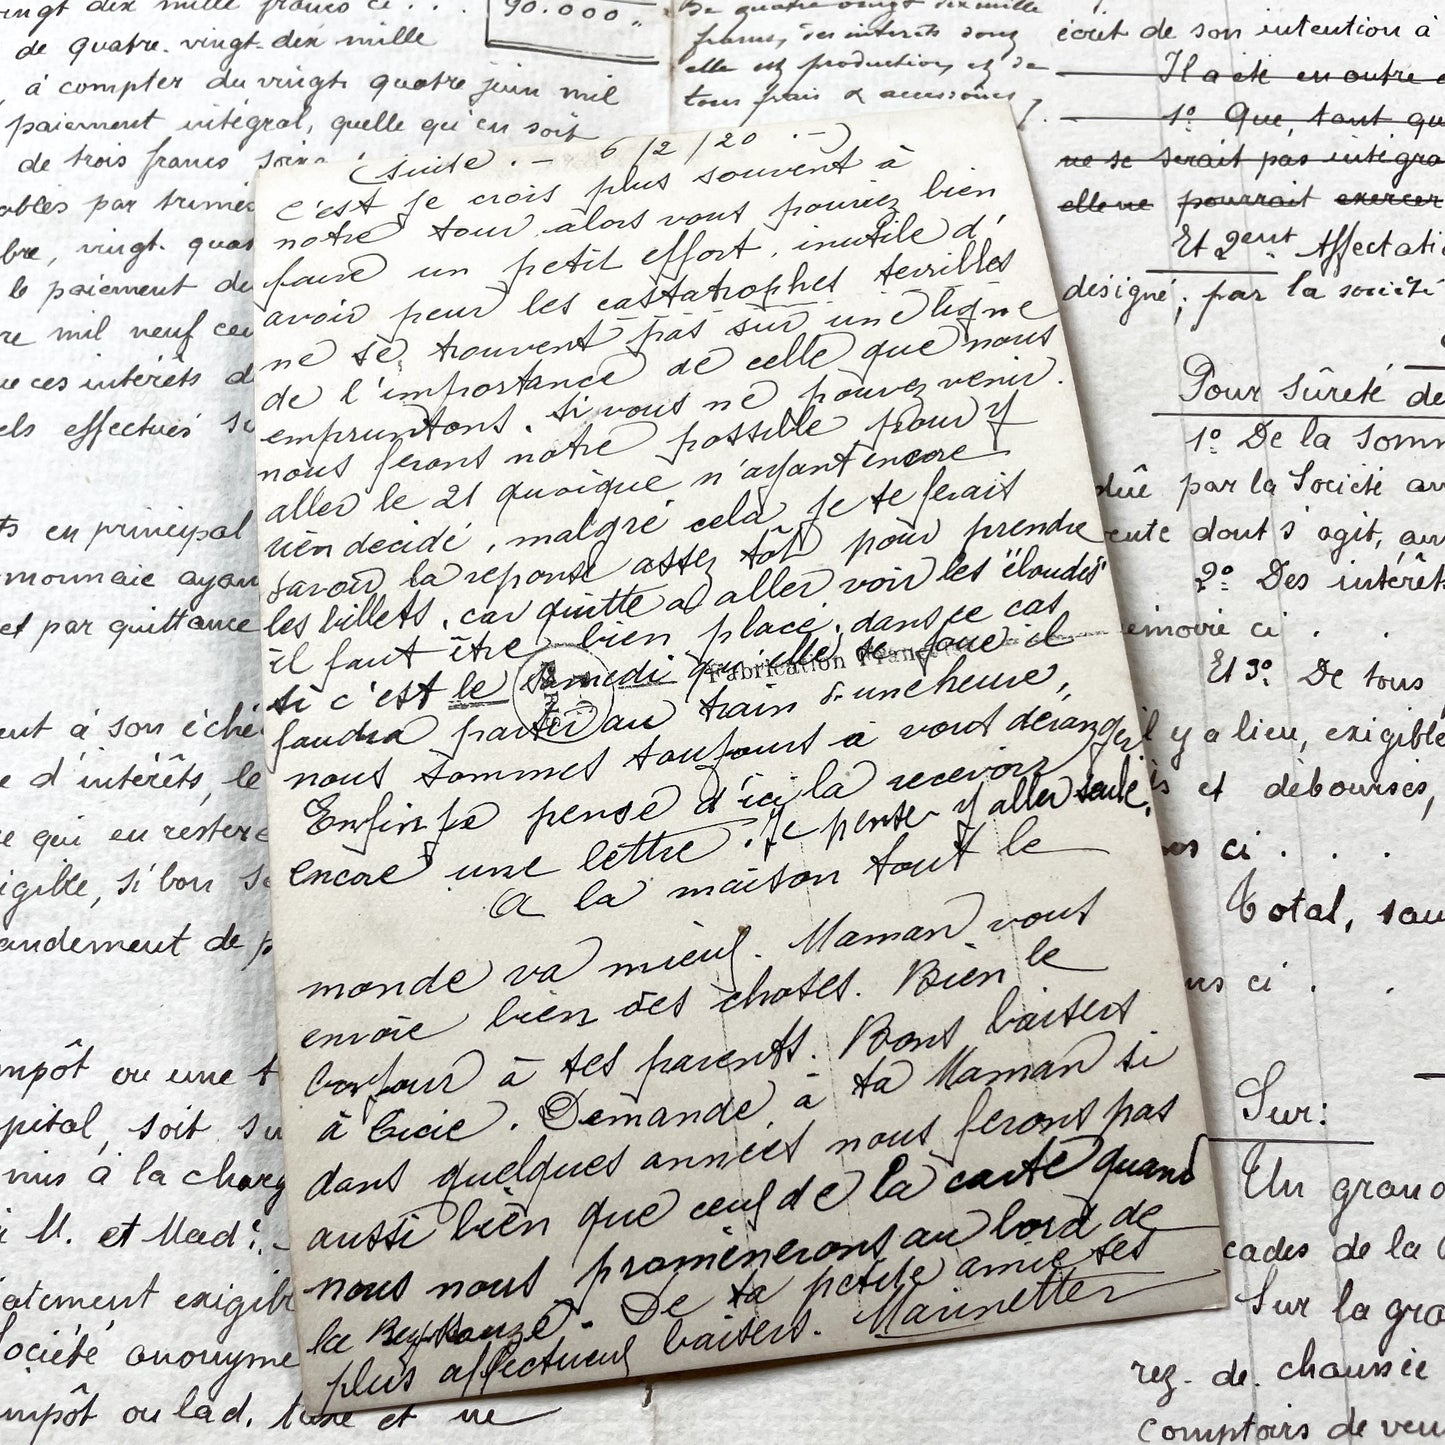 (suite. - 6/2/20 . -)
c'est je crois plus souvent à
notre tour alors vous pouriez bien
faire un petit effort, inutile d'
avoir peur les castatrophes terribles
ne se trouvent pas sur une ligne
de l'importance de celle que nous
empruntons. Si vous ne pouvez venir
nous ferons notre possible pour y
aller le 21 quoique n'ayant encore
rien décidé, malgré cela je te ferait
savoir la réponse assez tôt pour prendre
les billets, car quitte à aller voir les
il faut être bien placé, dans ce cas
si c'est le samedi qu'elle se joue il
faudra partir au train d'une heure,
nous sommes toujours à vous déranger
Enfin je pense d'ici la recevoir
encore une lettre. Je pense y aller seule.
A la maison tout le
monde va mieux. Maman vous
envoie bien des choses. Bien le
bonjour à tes parents. Bons baisers
à Lucie. Demande à ta Maman si
dans quelques années nous ferons pas
aussi bien que ceux de la carte quand
nous nous promènerons au bord de
la Reyssouze. De ta petite amie ses
plus affectueux baisers. Marinette
Fabrication Française
vingt dix mille francs ci . . .
90.000 "
de quatre-vingt-dix mille
à compter du vingt quatre juin mil
paiement intégral, quelle qu'en soit
de trois francs
ables par
bre, vingt-
le paiement de
re mil neuf
ue ces intérêts
els effectués
ts en principal
monnaie
et par quittance
ent à son
e d'intérêts, le
e qui en
igible, s'il bon
andement de
impôt ou une
pital, soit
mis à la
M. et Mad
atement
Société anonyme
impôt ou lad. taxe et ne
De quatre vingt dix mille
francs, des intérêts dont
elle est production, et de
tous frais & accessoires,
écrit de son intention à
Il a été en outre
1° Que, tant
ne se serait pas
elle ne pourrait exercer
Et 2ent Affectati
désigné, par la société
Pour sûreté de
1° De la
dûe par la Société
vente dont s'agit,
2° Des intérêts
mémoire ci . .
Et 3° De tous
il y a lieu, exigible
et déboursés,
ci . . .
Total,
ci . .
Sur:
Un grand
cades de la
Sur la
rez-de-chaussée
comptoirs de